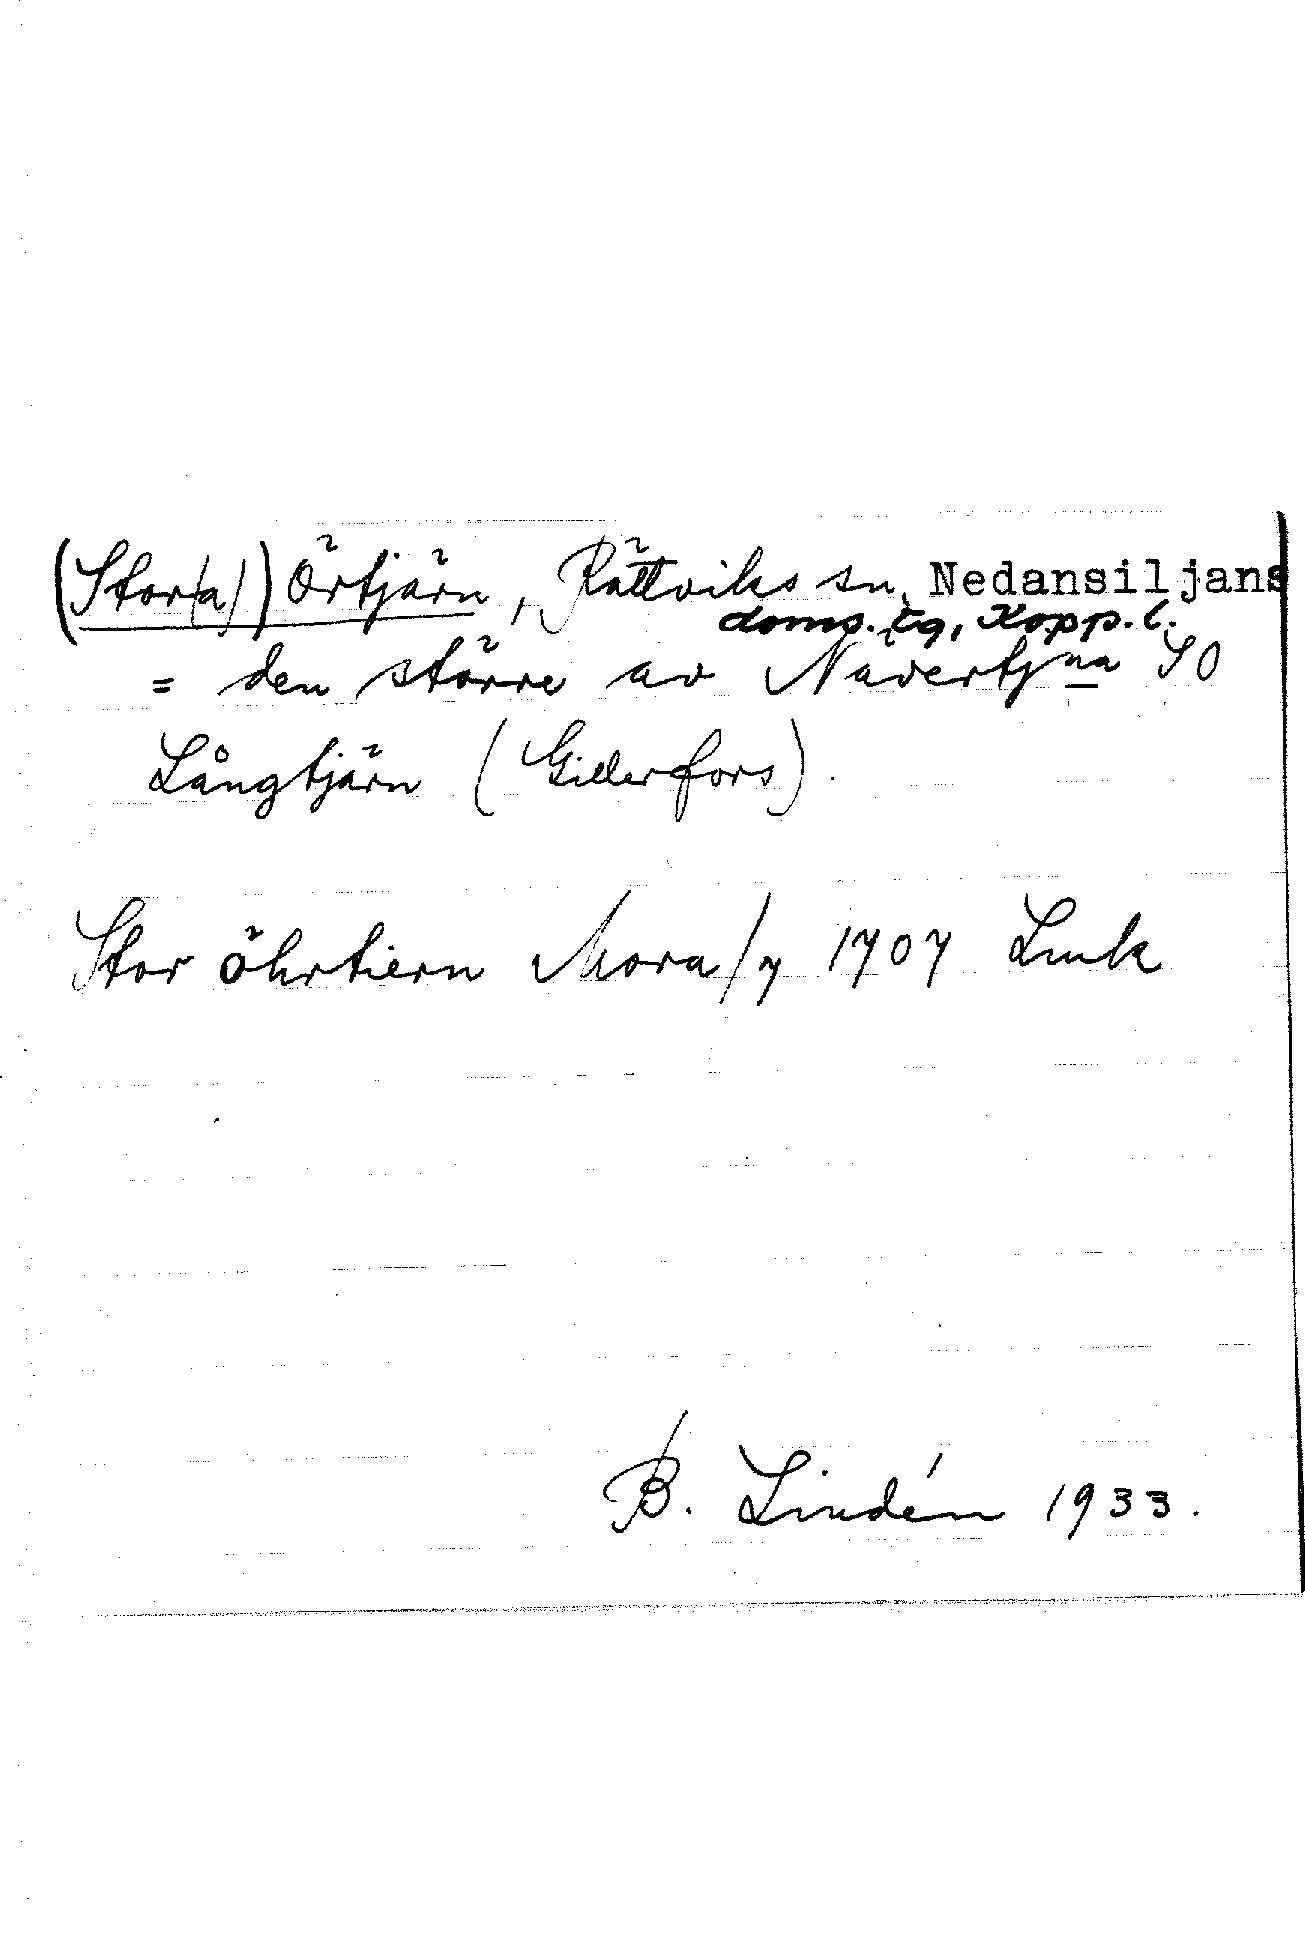 (Stor(a)) Örtjärn, Rättviks sn, Nedansiljans
doms. tg, Kopp. l.
= den större av Nävertjna SO
Långtjärn (Gillerfors).
Stor öhrtiern Mora/7 1707 Lmk
B. Lindén 1933.